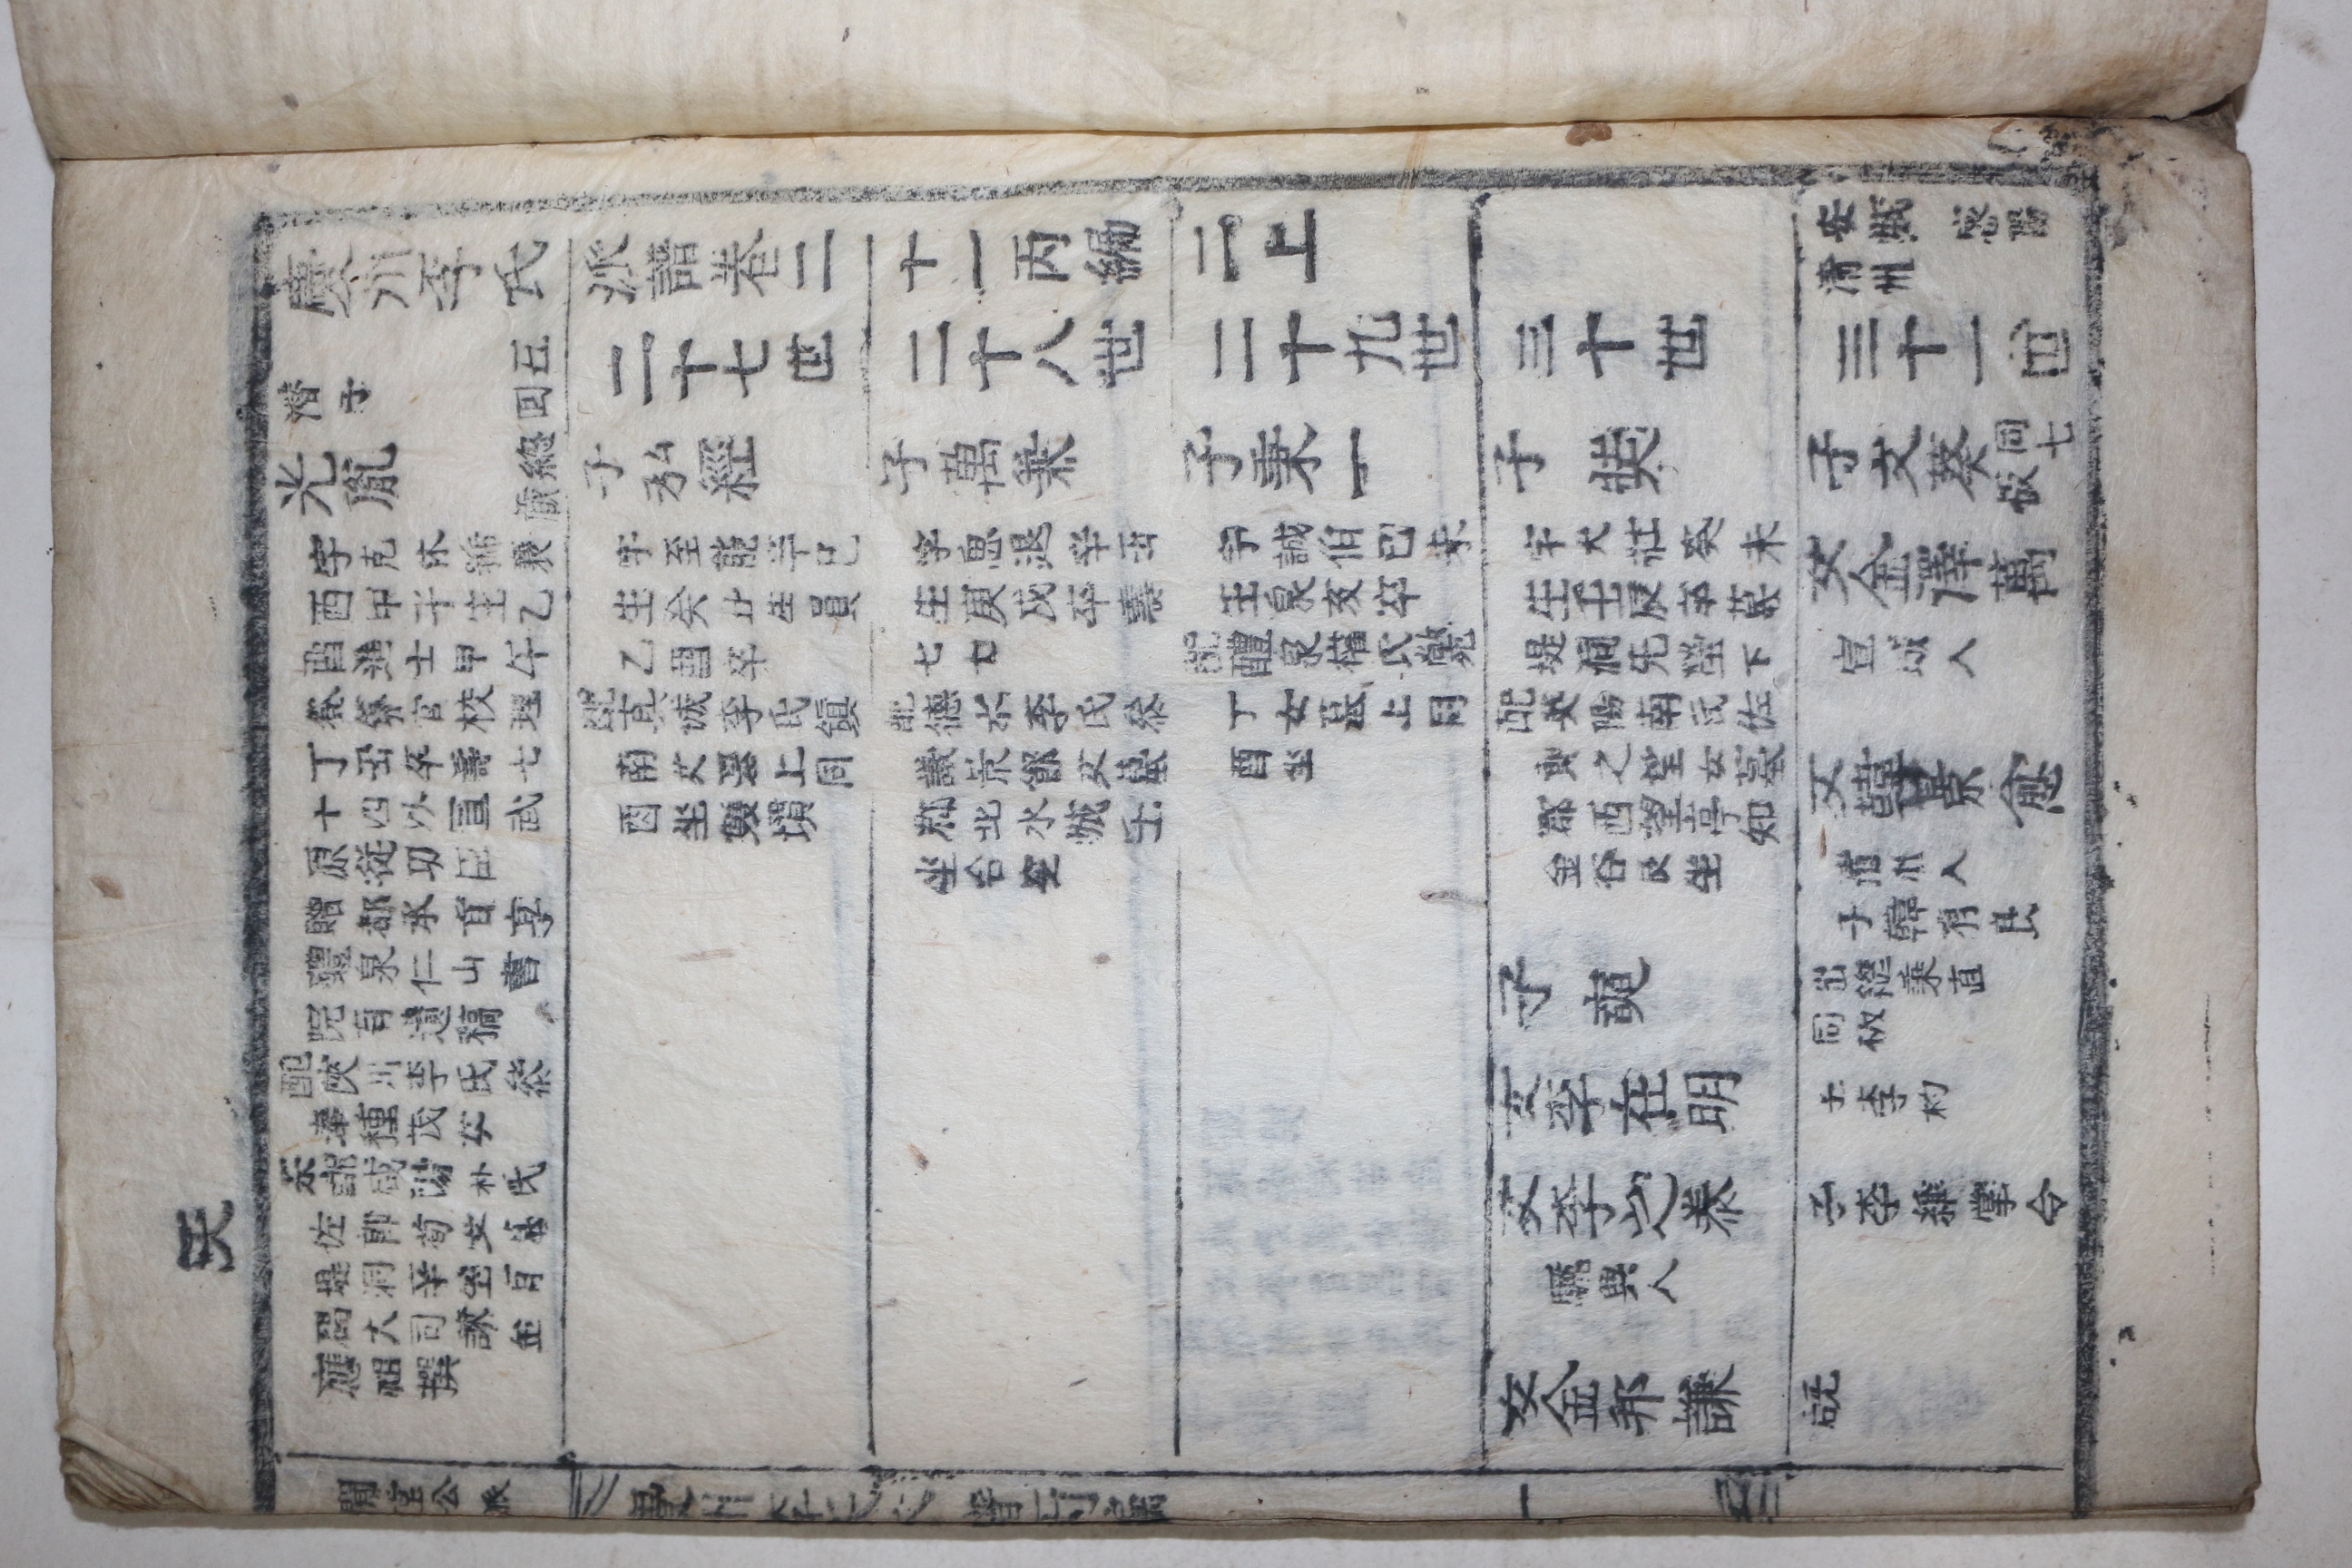 天
慶州李氏派譜卷二十一丙編二上
安城 密陽
清州
二十七世
二十八世
二十九世
三十世
三十一世
潛子
五回
總蔵
光胤
字克休號襄
西甲子生乙
酉進士甲午
卷第官校理
丁丑卒壽七
十四以宣武
原從功臣
贈都承旨享
醴泉仁山書
院有遺稿
配陝川李氏參
奉種茂女
咸陽朴氏
佐郎荀女墓
堤洞辛坐有
碣大司諫金
應祖撰
子弘經
字至能辛巳
生癸丑生員
乙酉卒
配真城李氏鎮
南女墓上同
酉坐雙墳
子萬兼
字思退辛丑
生庚戌卒壽
七十
配德水李氏參
議景節女墓
郡北水城壬
坐合窆
子秉一
字誠伯己未
卒
配醴泉權氏斃
丁女墓上同
酉坐
子奘
字大壯癸未
生壬辰卒墓
堤洞先塋下
配英陽南氏佐
郎之望女墓
郡西望亭知
金谷艮坐
子奭
女李在明
女李之泰
驪興人
女金邦謙
子文葵
同七板
女金澤萬
宣城人
女韓景愈
清州人
子韓有良
出繼秉直
同板
子李杓
子李維掌令
聞宣公派
一